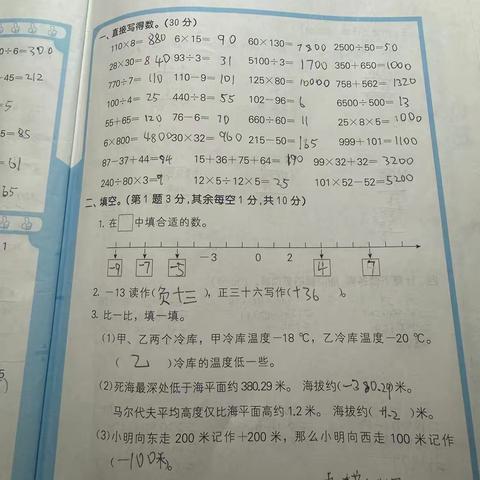 一、直接写得数。(30分)
110×8=880 6×15=90 60×130=7800 2500÷50=50
28×30=840 93÷3=31 5100÷3=1700 350+650=1000
770÷7=110 110-9=101 125×80=10000 758+562=1320
100÷4=25 440÷8=55 102-96=6 6500÷500=13
55+65=120 76-6=70 660÷60=11 25×8×5=1000
6×800=4800 30×32=960 215-50=165 999+101=1100
87-37+44=94 15+36+75+64=190 99×32+32=3200
240÷80×3=9 12×5÷12×5=25 101×52-52=5200
二、填空。(第1题3分,其余每空1分,共10分)
1. 在□中填合适的数。
-9 -7 -5 -3 0 2 4 7
2. -13读作(负十三),正三十六写作(+36)。
3. 比一比,填一填。
(1)甲、乙两个冷库,甲冷库温度-18℃,乙冷库温度-20℃。
(乙)冷库的温度低一些。
(2)死海最深处低于海平面约380.29米。 海拔约(-380.29)米。
马尔代夫平均高度仅比海平面高约1.2米。 海拔约(+1.2)米。
(3)小明向东走200米记作+200米,那么小明向西走100米记作
(-100米)。
0÷6=300
÷45=212
=5
5=85
=61
65
1
5